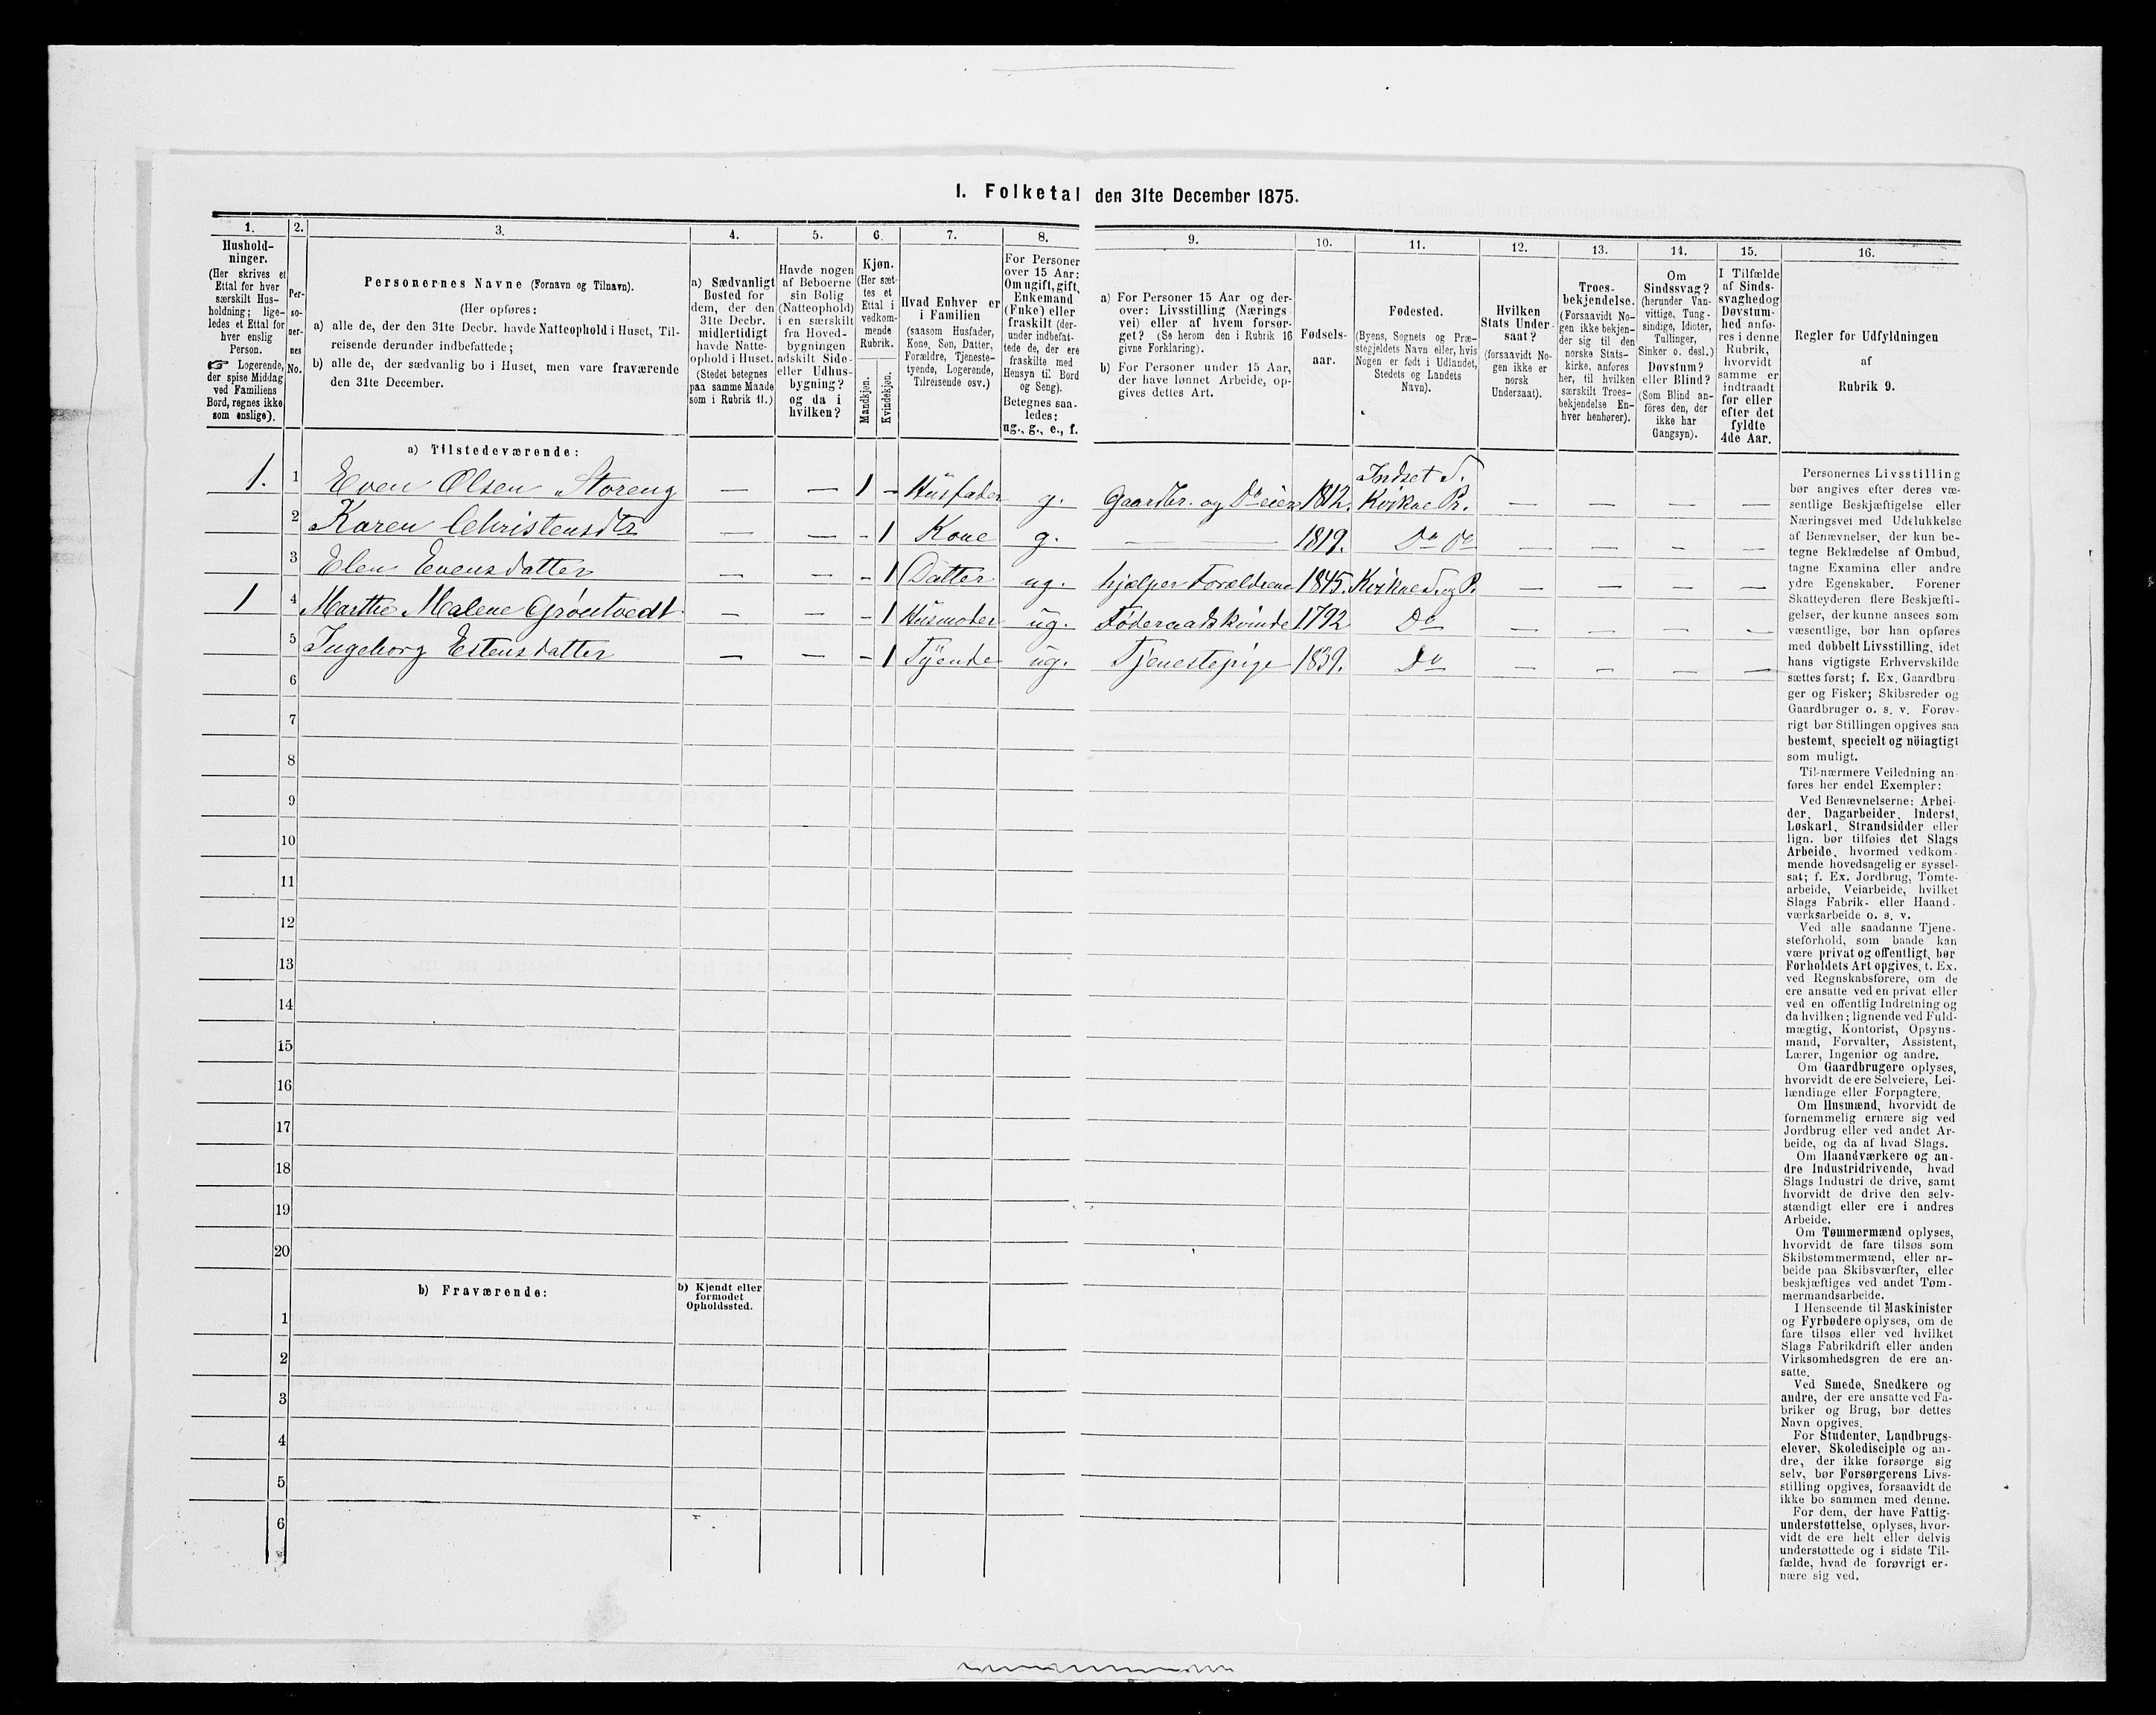 I. Folketal den 31te December 1875.
1. 2. 3. 4. 5. 6. 7. 8. 9. 10. 11. 12. 13. 14. 15. 16.
Hushold-
ninger.
(Her skrives et
Ettal for hver
særskilt Hus-
holdning; lige-
ledes et Ettal for
hver enslig
Person.
☞ Logerende,
der spise Middag
ved Familiens
Bord, regnes ikke
som enslige).
Per-
so-
ner-
nes
No.
Personernes Navne (Fornavn og Tilnavn).
(Her opføres:
a) alle de, der den 31te Decbr. havde Natteophold i Huset, Til-
reisende derunder indbefattede;
b) alle de, der sædvanlig bo i Huset, men vare fraværende
den 31te December.
a) Sædvanligt
Bosted for
dem, der den
31te Decbr.
midlertidigt
havde Natte-
ophold i Huset.
(Stedet betegnes
paa samme Maade
som i Rubrik 11.)
Havde nogen
af Beboerne
sin Bolig
(Natteophold)
i en særskilt
fra Hoved-
bygningen
adskilt Side-
eller Udhus-
bygning?
og da i
hvilken?
Kjøn.
(Her sæt-
tes et
Ettal i
vedkom-
mende
Rubrik.
Mandkjøn.
Kvindekjøn.
Hvad Enhver er
i Familien
(saasom Husfader,
Kone, Søn, Datter,
Forældre, Tjeneste-
tyende, Logerende,
Tilreisende osv.)
For Personer
over 15 Aar:
Om ugift, gift,
Enkemand
(Enke) eller
fraskilt (der-
under indbefat-
tede de, der ere
fraskilte med
Hensyn til Bord
og Seng).
Betegnes saa-
ledes:
ug., g., e., f.
a) For Personer 15 Aar og der-
over: Livsstilling (Nærings-
vei) eller af hvem forsør-
get? (Se herom den i Rubrik 16
givne Forklaring).
b) For Personer under 15 Aar,
der have lønnet Arbeide, op-
gives dettes Art.
Fødsels-
aar.
Fødested.
(Byens, Sognets og Præ-
stegjeldets Navn eller, hvis
Nogen er født i Udlandet,
Stedets og Landets
Navn).
Hvilken
Stats Under-
saat?
(forsaavidt No-
gen ikke er
norsk
Undersaat).
Troes-
bekjendelse.
(Forsaavidt No-
gen ikke bekjen-
der sig til den
norske Stats-
kirke, anføres
her, til hvilken
særskilt Troes-
bekjendelse En-
hver henhører).
Om
Sindssvag?
(herunder Van-
vittige, Tung-
sindige, Idioter,
Tullinger,
Sinker o. desl.)
Døvstum?
eller Blind?
(Som Blind an-
føres den, der
ikke har
Gangsyn).
I Tilfælde
af Sinds-
svaghed og
Døvstum-
hed anfø-
res i denne
Rubrik,
hvorvidt
samme er
indtraadt
før eller
efter det
fyldte
4de Aar.
Regler for Udfyldningen
af
Rubrik 9.
a) Tilstedeværende:
1. 1 Even Olsen Storeng — — 1 - Husfader g. Gaardbr. og Do eier 1812. Indset S. Kvikne Pr. — — — —
2 Karen Christensdtr — — - 1 Kone g. — — 1819. Do Do — — — —
3 Elen Evensdatter — — - 1 Datter ug. hjælper Forældrene 1845. Kvikne S. og P. — — — —
1 4 Marthe Malene Grøntvedt — — - 1 Husmoder ug. Føderaadskvinde 1792 Do — — — —
5 Ingeborg Estensdatter — — - 1 Tyende ug. Tjenestepige 1839. Do — — — —
6
7
8
9
10
11
12
13
14
15
16
17
18
19
20
b) Fraværende:
b) Kjendt eller
formodet
Opholdssted.
1
2
3
4
5
6
Personernes Livsstilling
bør angives efter deres væ-
sentlige Beskjæftigelse eller
Næringsvei med Udelukkelse
af Benævnelser, der kun be-
tegne Beklædelse af Ombud,
tagne Examina eller andre
ydre Egenskaber. Forener
Skatteyderen flere Beskjæfti-
gelser, der kunne ansees som
væsentlige, bør han opføres
med dobbelt Livsstilling, idet
hans vigtigste Erhvervskilde
sættes først; f. Ex. Gaardbru-
ger og Fisker; Skibsreder og
Gaardbruger o. s. v. Forøv-
rigt bør Stillingen opgives saa
bestemt, specielt og nöiagtigt
som muligt.
Til nærmere Veiledning an-
føres her endel Exempler:
Ved Benævnelserne: Arbei-
der, Dagarbeider, Inderst,
Løskarl, Strandsidder eller
lign. bør tilføies det Slags
Arbeide, hvormed vedkom-
mende hovedsagelig er syssel-
sat; f. Ex. Jordbrug, Tomte-
arbeide, Veiarbeide, hvilket
Slags Fabrik- eller Haand-
værksarbeide o. s. v.
Ved alle saadanne Tjene-
steforhold, som baade kan
være privat og offentligt, bør
Forholdets Art opgives, t. Ex.
ved Regnskabsførere, om de
ere ansatte ved en privat eller
ved en offentlig Indretning og
da hvilken; lignende ved Fuld-
mægtig, Kontorist, Opsyns-
mand, Forvalter, Assistent,
Lærer, Ingeniør og andre.
Om Gaardbrugere oplyses,
hvorvidt de ere Selveiere, Lei-
lændinge eller Forpagtere.
Om Husmænd, hvorvidt de
fornemmelig ernære sig ved
Jordbrug eller ved andet Ar-
beide, og da af hvad Slags.
Om Haandværkere og an-
dre Industridrivende, hvad
Slags Industri de drive, samt
hvorvidt de drive den selv-
stændigt eller ere i andres
Arbeide.
Om Tømmermænd oplyses,
hvorvidt de fare tilsøs som
Skibstømmermænd, eller ar-
beide paa Skibsværfter, eller
beskjæftiges ved andet Tøm-
mermandsarbeide.
I Henseende til Maskinister
og Fyrbødere oplyses, om de
fare tilsøs eller ved hvilket
Slags Fabrikdrift eller anden
Virksomhedsgren de ere an-
satte.
Ved Smede, Snedkere og
andre, der ere ansatte ved Fa-
briker og Brug, bør dettes
Navn opgives.
For Studenter, Landbrugs-
elever, Skoledisciple og an-
dre, der ikke forsørge sig
selv, bør Forsørgerens Livs-
stilling opgives, forsaavidt de
ikke bo sammen med denne.
For dem, der have Fattig-
understøttelse, oplyses, hvor-
vidt de ere helt eller delvis
understøttede og i sidste Til-
fælde, hvad de forøvrigt er-
nære sig ved.